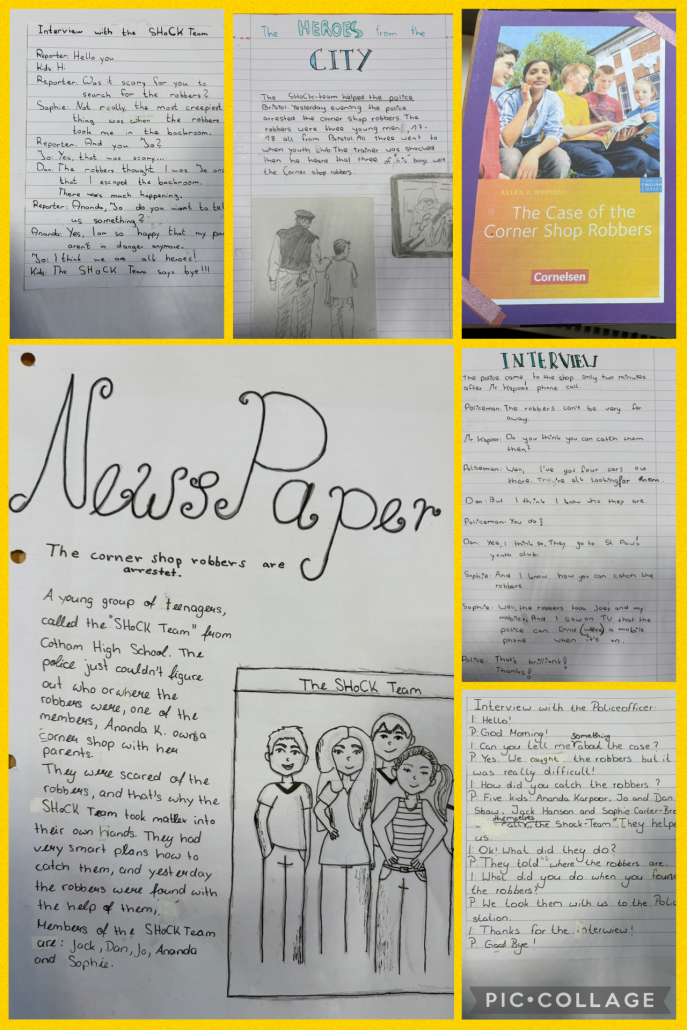 Interview with the SHoCK Team
Reporter: Hello you
Kids: Hi
Reporter: Was it scary for you to
search for the robbers?
Sophie: Not really, the most creepiest
thing was when the robbers
took me in the backroom.
Reporter: And you Jo?
Jo: Yes, that was scary...
Dan: The robbers thought I was Jo and
that I escaped the backroom.
There was much happening.
Reporter: Ananda, Jo do you want to tel
us something?
Ananda: Yes, I am so happy that my par
aren't in danger anymore.
Jo: I think we are all heroes!
Kids: The SHoCK Team says bye!!!
The HEROES from the
CITY
The SHoCK-team helped the police
Bristol: Yesterday evening the police
arrested the corner shop robbers. The
robbers were three young men, 17-
18 all from Bristol. All three went to
when youth club. The trainer was shocked
then he heard that three of his boys were
the Corner shop robbers.
ALLEN J. WOPPERT
ENGLISH
The Case of the
Corner Shop Robbers
Cornelsen
NewsPaper
The corner shop robbers are
arrestet.
A young group of teenagers,
called the "SHoCK Team" from
Cotham High School. The
police just couldn't figure
out who or where the
robbers were, one of the
members, Ananda K. owns a
corner shop with her
parents.
They were scared of the
robbers, and that's why the
SHoCK Team took matter into
their own hands. They had
very smart plans how to
catch them, and yesterday
the robbers were found with
the help of them.
Members of the SHoCK Team
are: Jack, Dan, Jo, Ananda
and Sophie.
The SHoCK Team
INTERVIEW
The police came to the shop only two minutes
after Mr Kapoor's phone call.
Policeman: The robbers can't be very far
away.
Mr Kapoor: Do you think you can catch them
then?
Policeman: Well, I've got four cars out
there. They're all looking for them.
Dan: But I think I know who they are.
Policeman: You do?
Dan: Yes, I think so. They go to St Paul's
youth club.
Sophie: And I know how you can catch the
robbers.
Sophie: Well, the robbers took Joes and my
mobile. And I saw on TV that the
police can find (where) a mobile
phone when it's on.
Police: That's brilliant!
Thanks!
Interview with the Policeofficer:
I: Hello!
P: Good Morning!
something
I: Can you tell me about the case?
P: Yes. We caught the robbers but it
was really difficult!
I: How did you catch the robbers?
P: Five kids: Ananda Karpoor, Jo and Dan
Shaw, Jack Hanson and Sophie Carter-Bro
themselves
call the "Shock-Team". They helpe
us.
I: Ok! What did they do?
P: They told us where the robbers are.
I: What did you do when you foun
the robbers?
P: We took them with us to the Polic
station.
I: Thanks for the interwiew!
P: Good Bye!
PIC•COLLAGE